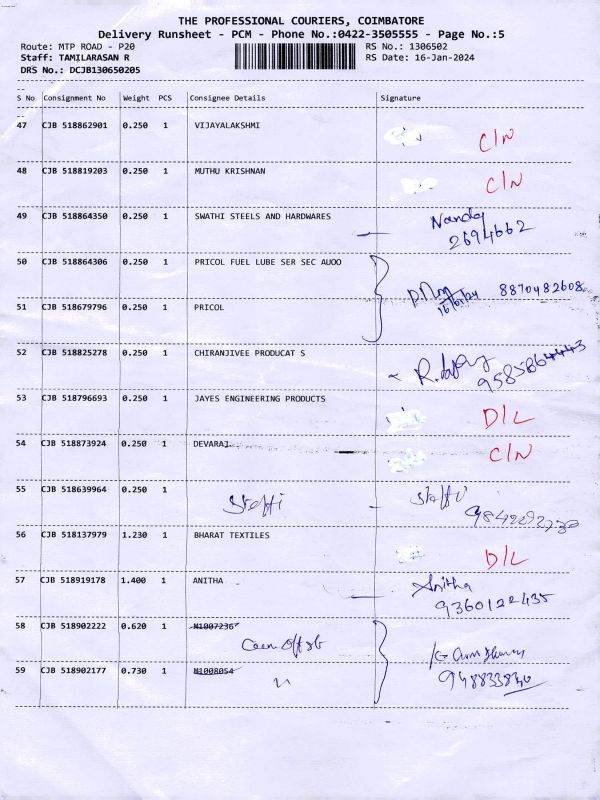 THE PROFESSIONAL COURIERS, COIMBATORE
Delivery Runsheet - PCM - Phone No.:0422-3505555 - Page No.:5
Route: MTP ROAD - P20 RS No.: 1306502
Staff: TAMILARASAN R RS Date: 16-Jan-2024
DRS No.: DCJB130650205
S No Consignment No Weight PCS Consignee Details Signature
47 CJB 518862901 0.250 1 VIJAYALAKSHMI C/N
48 CJB 518819203 0.250 1 MUTHU KRISHNAN C/N
49 CJB 518864350 0.250 1 SWATHI STEELS AND HARDWARES
2694662
50 CJB 518864306 0.250 1 PRICOL FUEL LUBE SER SEC AUOO
16/01/24 8870482608
51 CJB 518679796 0.250 1 PRICOL
52 CJB 518825278 0.250 1 CHIRANJIVEE PRODUCAT S
53 CJB 518796693 0.250 1 JAYES ENGINEERING PRODUCTS D/L
54 CJB 518873924 0.250 1 DEVARAJ C/N
55 CJB 518639964 0.250 1
56 CJB 518137979 1.230 1 BHARAT TEXTILES D/L
57 CJB 518919178 1.400 1 ANITHA Anitha
9360122435
58 CJB 518902222 0.620 1 N1007236
59 CJB 518902177 0.730 1 N1008054